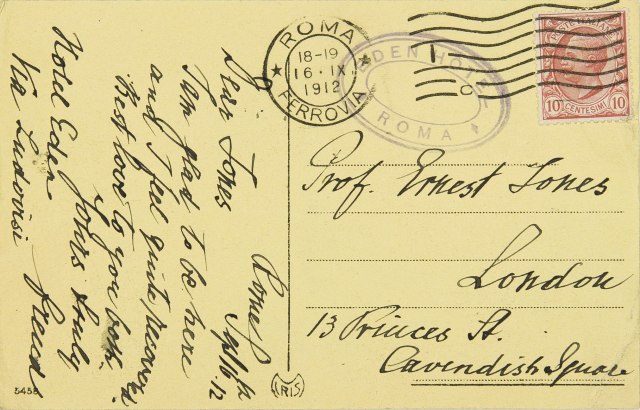 Rome
Sept 16 12
Dear Jones
I am glad to be here
and I feel quite recovered
Best love to you both.
Yours truly
Freud
Hotel Eden
Via Ludovisi
ROMA
18-19
16·IX
1912
FERROVIA
EDEN HOTEL
ROMA
POSTE ITALIANE
10 CENTESIMI 10
Prof. Ernest Jones
London
13 Princes St.
Cavendish Square
5458
IRIS